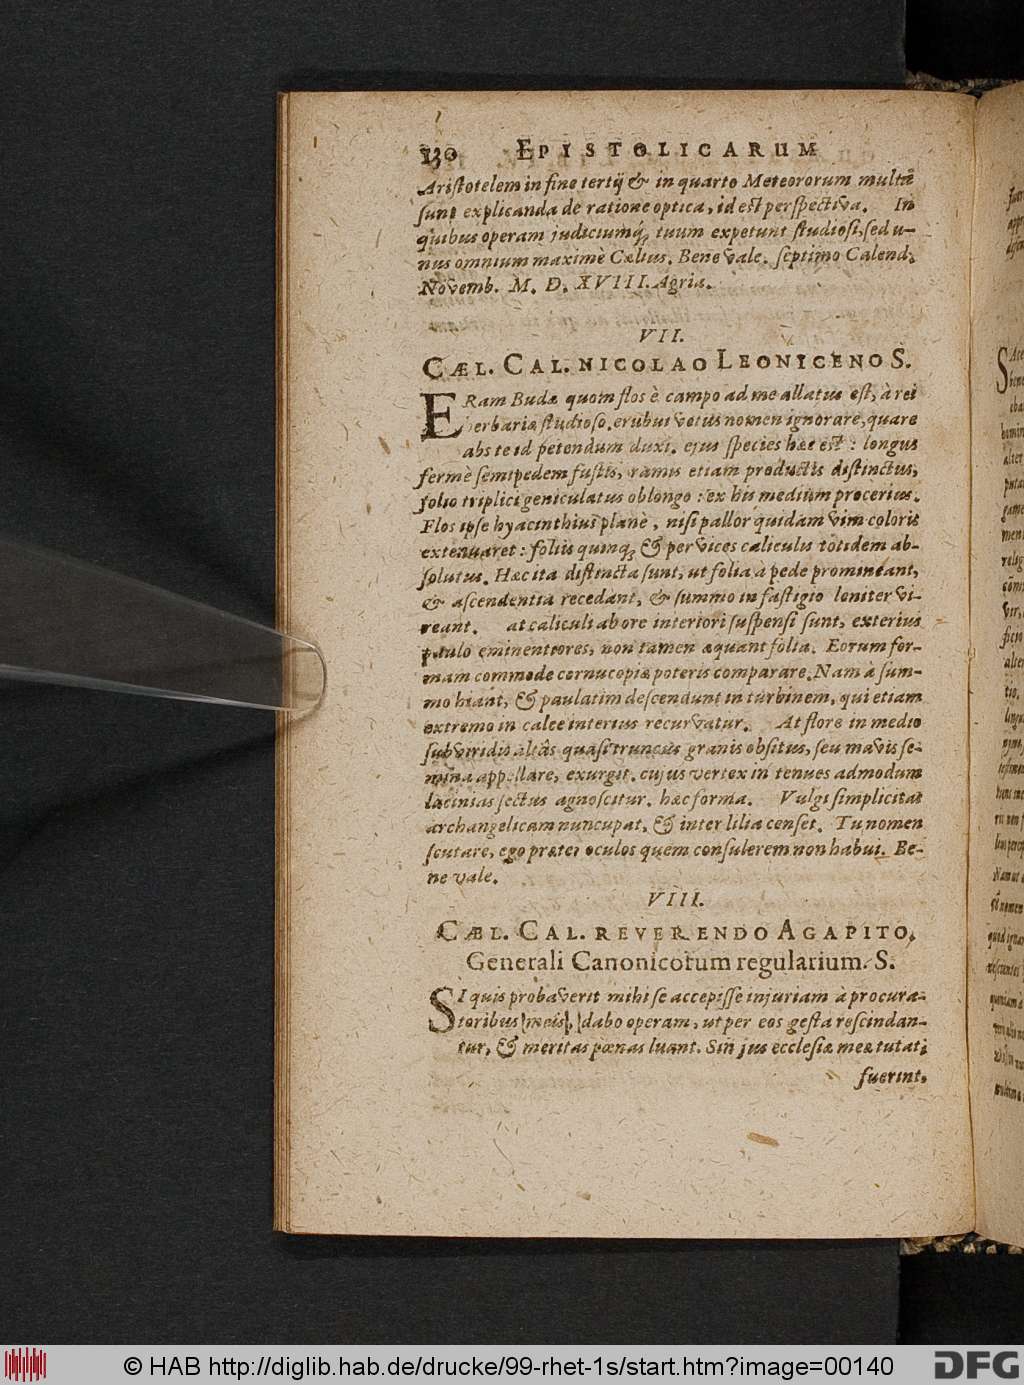 130 EPISTOLICARUM
Aristotelem in fine tertij & in quarto Meteororum multæ
sunt explicanda de ratione optica, id est perspectiva. In
quibus operam judiciumq́; tuum expetunt studiosi, sed u-
nus omnium maximè Cælius. Bene vale. septimo Calend.
Novemb. M. D. XVIII. Agria.
VII.
CÆL. CAL. NICOLAO LEONICENO S.
ERam Budæ quom flos è campo ad me allatus est, à rei
herbariæ studioso. erubui vetus nomen ignorare, quare
abs te id petendum duxi. ejus species hæc est: longus
fermè semipedem fustis, ramis etiam productis distinctus,
folio triplici geniculatus oblongo: ex his medium procerius.
Flos ipse hyacinthius planè, nisi pallor quidam vim coloris
extenuaret: foliis quinq́; & per vices caliculis totidem ab-
solutus. Hæc ita distincta sunt, ut folia à pede promineant,
& ascendentia recedant, & summo in fastigio leniter vi-
reant. at caliculi ab ore interiori suspensi sunt, exterius
paulo eminentiores, non tamen æquant folia. Eorum for-
mam commode cornucopiæ poteris comparare. Nam à sum-
mo hiant, & paulatim descendunt in turbinem, qui etiam
extremo in calce interius recurvatur. At flore in medio
subviridis altâs quasi truncus granis obsitus, seu mavis se-
mina appellare, exurgit. cujus vertex in tenues admodum
lacinias sectus agnoscitur. hæc forma. Vulgi simplicitas
archangelicam nuncupat, & inter lilia censet. Tu nomen
scutare, ego præter oculos quem consulerem non habui. Be-
ne vale.
VIII.
CÆL. CAL. REVERENDO AGAPITO,
Generali Canonicorum regularium. S.
SI quis probaverit mihi se accepisse injuriam à procura-
toribus meis, dabo operam, ut per eos gesta rescindan-
tur, & meritas pœnas luant. Sin jus ecclesiæ meæ tutati
fuerint,
© HAB http://diglib.hab.de/drucke/99-rhet-1s/start.htm?image=00140
DFG